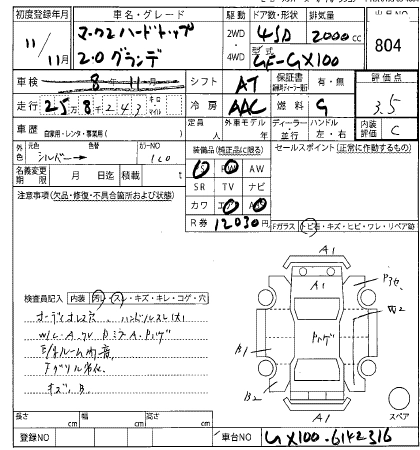 初度登録年月 車名・グレード 駆動 ドア数・形状 排気量 出品NO
11/11月 マークⅡハードトップ 2WD 4SD 2000cc 804
2.0 グランデ 4WD 型式 GF-GX100
車検 8年11月 シフト AT 保証書 有・無 評価点 3.5
走行 25万8千243 キロ マイル 冷房 AAC 燃料 G
車歴 自家用・レンタ・事業用( ) 定員 人 外車モデル 年 ディーラー 並行 ハンドル 左・右 内装評価 C
外色 元色 シルバー 色替 カラーNO 1C0 装備品(純正品に限る) セールスポイント(正常に作動するもの)
名義変更期限 月 日迄 積載量 t SR TV ナビ
注意事項(欠品・修復・不具合箇所および状態) カワ
R券 12030円 Fガラス トビ石・キズ・ヒビ・ワレ・リペア跡
A1
A1
検査員記入 内装 汚レ・スレ・キズ・キレ・コゲ・穴
オーディオレス穴 ハンドルスレ大
エンジンルーム内音
Fグリル劣化
キズ、B.
B1
B2
A1
スペア
長さ cm 幅 cm 高さ cm
登録NO 車台NO GX100-6142316